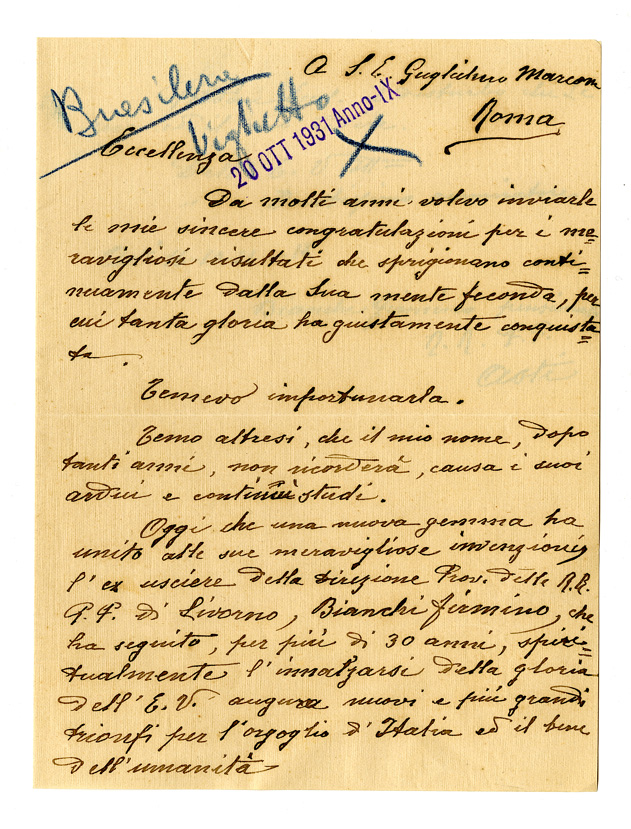 A S. E. Guglielmo Marconi
Roma
Brasilera
Viglietto
20 OTT 1931 Anno-IX
Eccellenza
Da molti anni volevo inviarle
le mie sincere congratulazioni per i me=
ravigliosi risultati che sprigionano conti=
nuamente dalla Sua mente feconda, per
cui tanta gloria ha giustamente conquista=
ta.
Temevo importunarla.
Temo altresì, che il mio nome, dopo
tanti anni, non ricorderà, causa i suoi
ardui e continui studi.
Oggi che una nuova gemma ha
unito alle sue meravigliose invenzioni,
l'ex usciere della Direzione Prov. delle R.R.
P.P. di Livorno, Bianchi Firmino, che
ha seguito, per più di 30 anni, spiri=
tualmente l'innalzarsi della gloria
dell'E.V. augura nuovi e più grandi
trionfi per l'orgoglio d'Italia ed il bene
dell'umanità